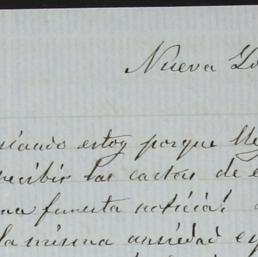 Nueva Yo
siando estoy porque lle
recibir las cartas de e
na funesta noticia!
la misma ansiedad e y